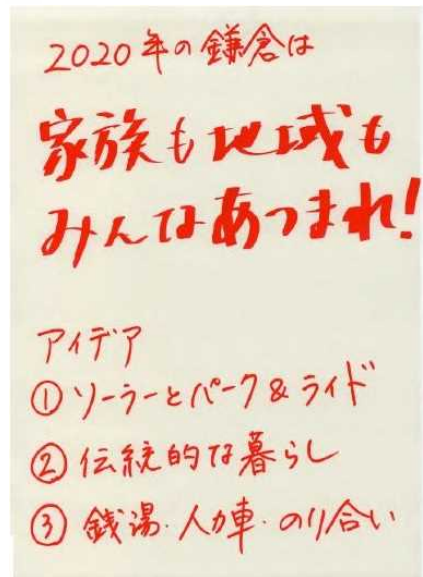 2020年の鎌倉は
家族も地域も
みんなあつまれ!
アイデア
①ソーラーとパーク&ライド
②伝統的な暮らし
③銭湯・人力車・のり合い